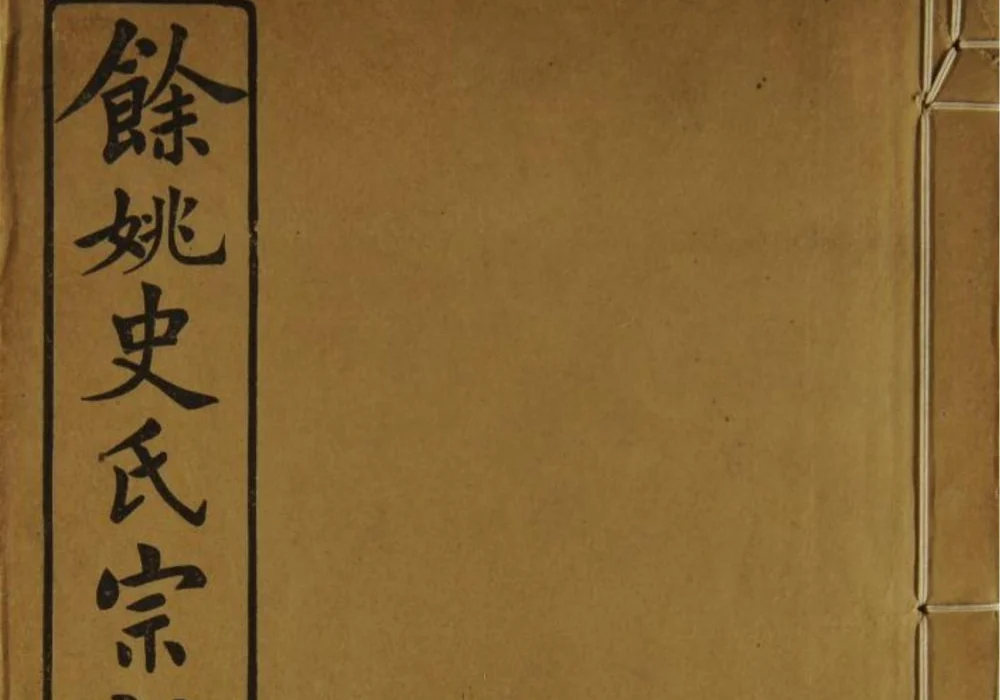 餘姚史氏宗